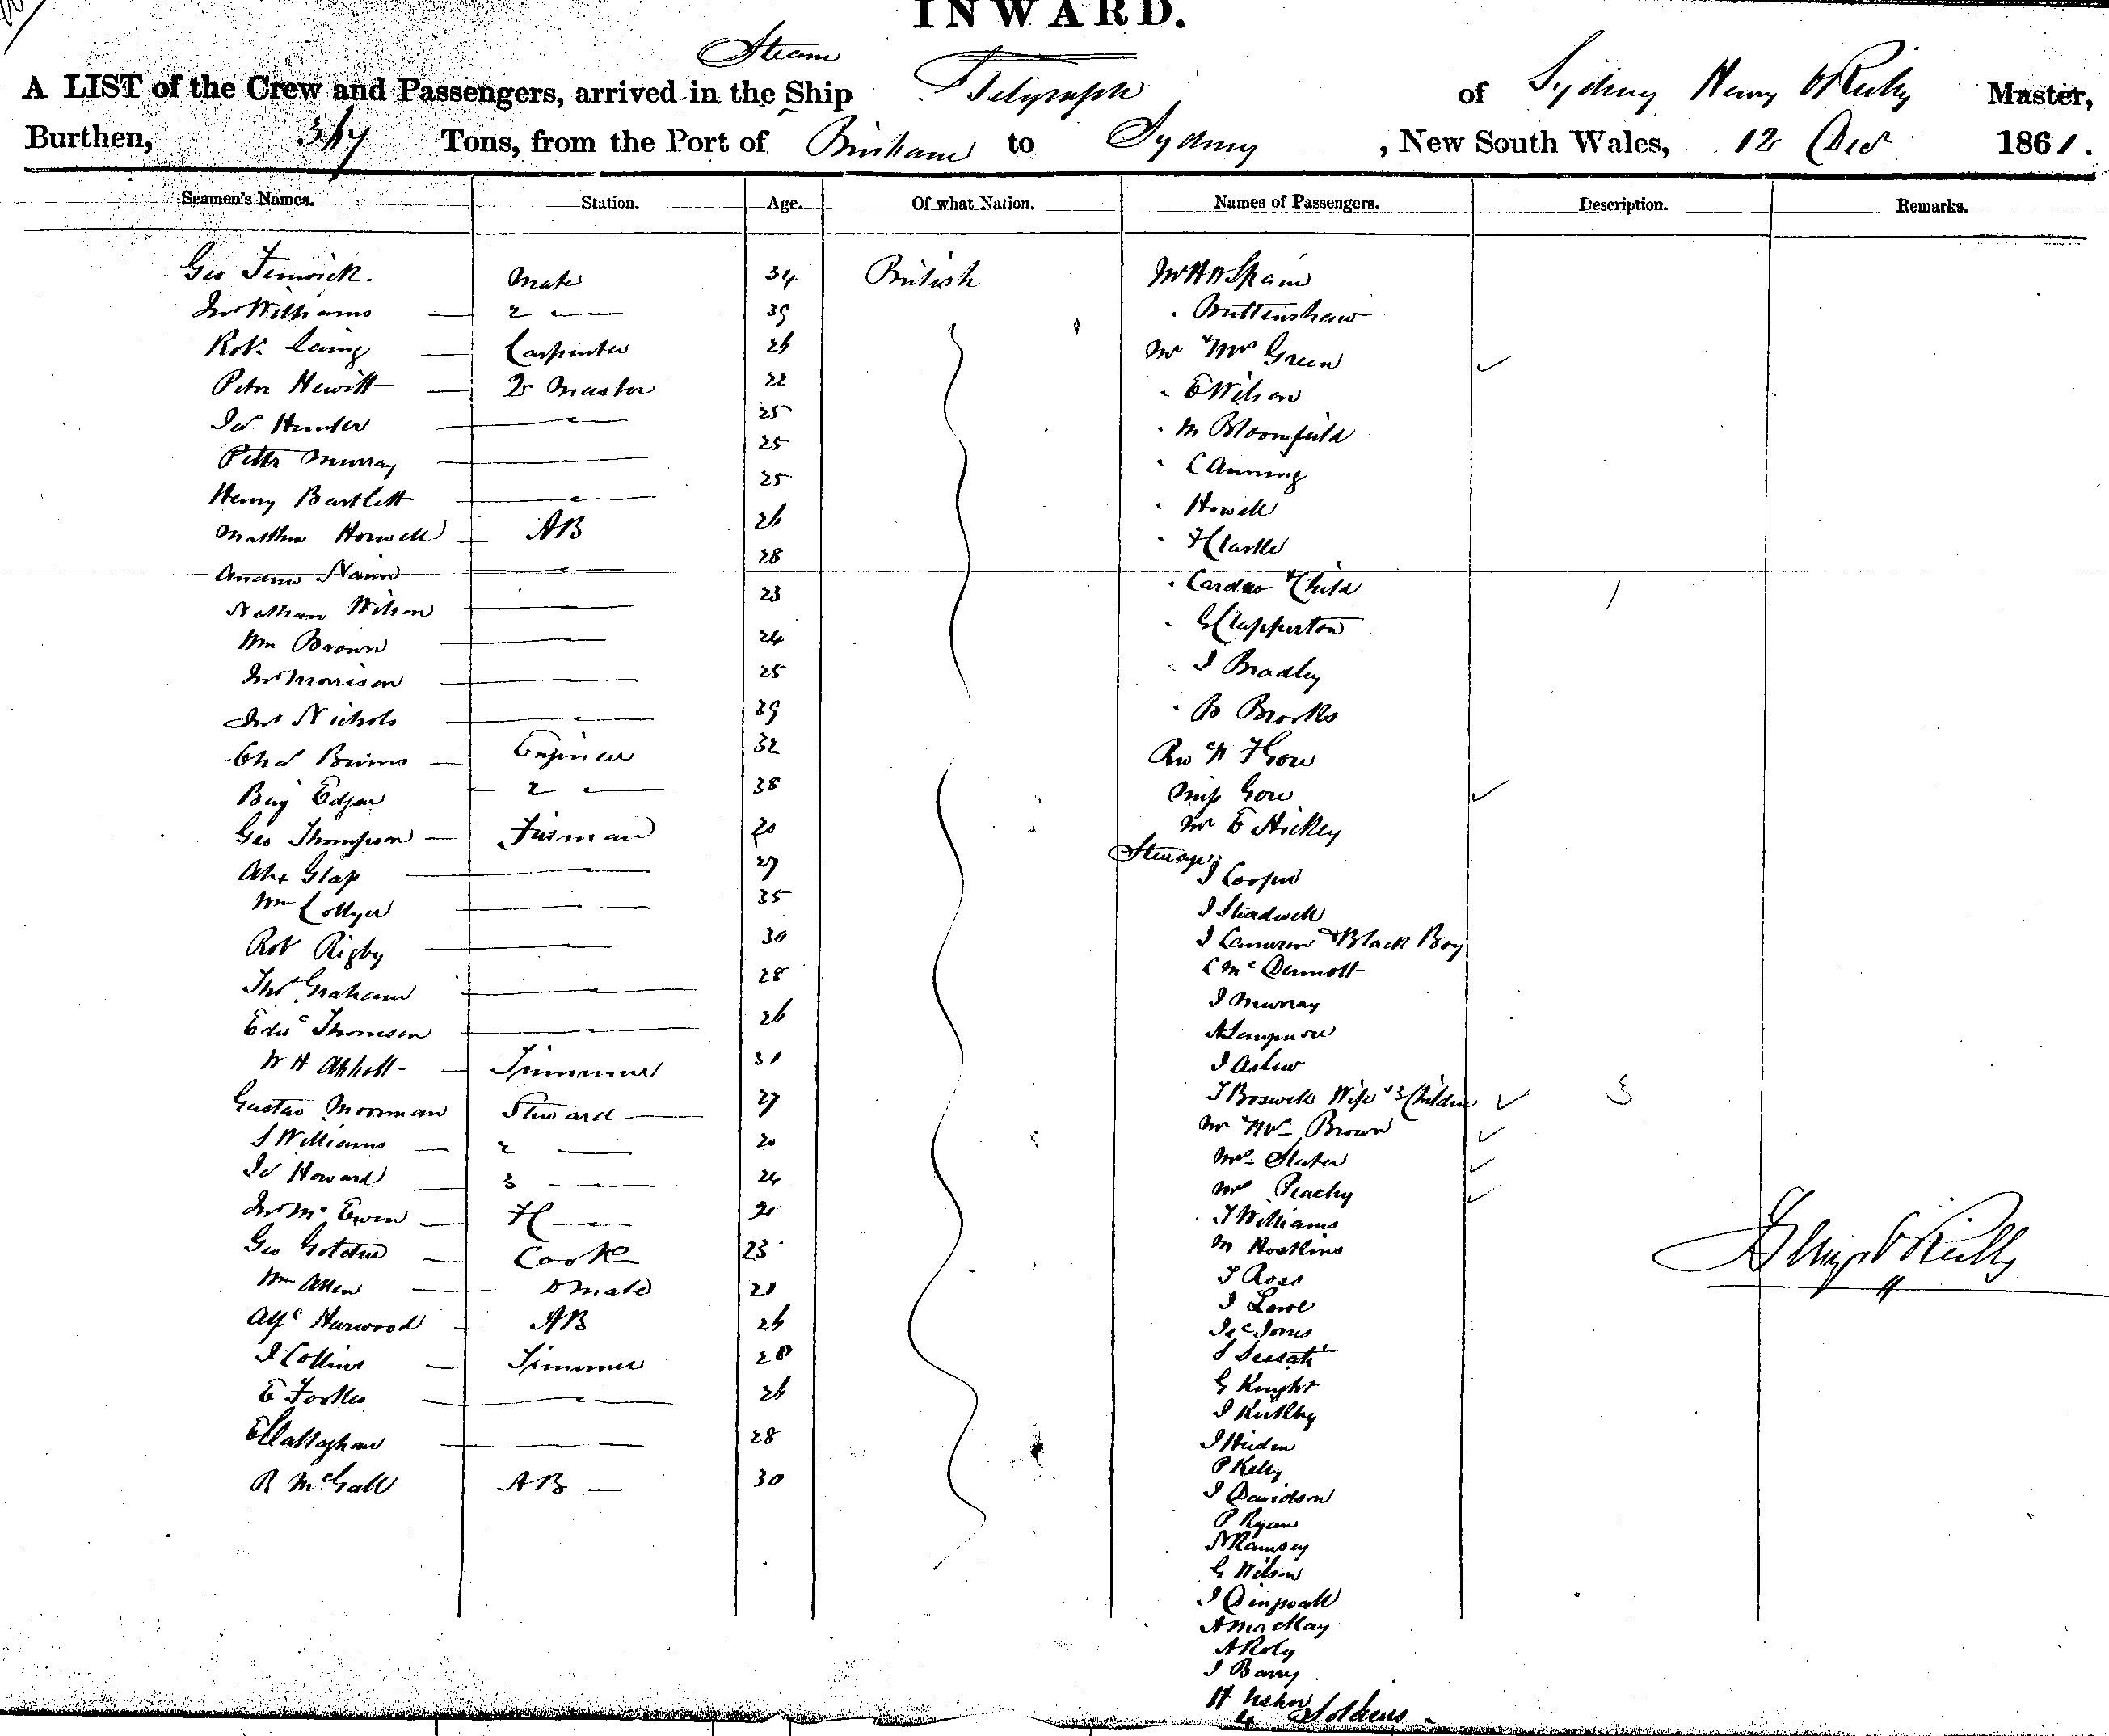 INWARD.
Steam
A LIST of the Crew and Passengers, arrived in the Ship Telegraph of Sydney Henry O'Reilly Master,
Burthen, 367 Tons, from the Port of Brisbane to Sydney, New South Wales, 12 Decr 1861.
Seamen's Names. Station. Age. Of what Nation. Names of Passengers. Description. Remarks.
Geo Fenwick Mate 34 British Mr H N Spain
Jno Williams — 2 — 39 . Buttenshaw
Robt Laing — Carpenter 26 Mr & Mrs Green ✓
Peter Hewitt — Qr Master 22 . E Wilson
Jas Hunter — 25 . M Bloomfield
Peter Murray — 25 . C Anning
Henry Bartlett — 25 . Howell
Matthew Horwell — AB 26 . H Clarke
Andrew Nairn — 28 . Cardew & Child 1
Nathan Wilson — 23 . G Clapperton
Wm Brown — 24 . J Bradley
Jno Morrison — 25 . B Brooks
Jno Nichols — 39 Rev W F Gore
Chas Binns — Engineer 32 Miss Gore ✓
Benj Edgar — 2 — 38 Mr E Hickey
Geo Thompson — Fireman 20 Steerage
Alex Glass — 27 J Cooper
Wm Collyer — 35 J Steadwell
Rob Rigby — 30 J Cameron & Black Boy
Thos Graham — 28 C McDermott
Edwd Thomson — 26 J Murray
W H Abbott — Trimmer 31
Gustav Moorman Steward — 27 J Boswell Wife & 3 Children ✓ 3
S Williams — 2 — 20 Mr & Mrs Brown ✓
Jas Howard — 3 — 24 Mrs Slater ✓
Jno McEwen — F C — Mrs Peachy ✓
Geo Cook 23 J Williams
Wm Allen — Do mate 20 M Hoskins
Alfd Harwood — AB 26 J Ross
J Collins — Trimmer 28 J Lowe
E Forbes — 26 Jas Jones
E Callaghan — 28
R McGall AB — 30 G Knight
J Kirkby
P Kelly
J Davidson
P Ryan
N Ramsey
G Wilson
J Dingwall
A MacKay
A Roly
J Barry
4 Soldiers.
Henry O'Reilly